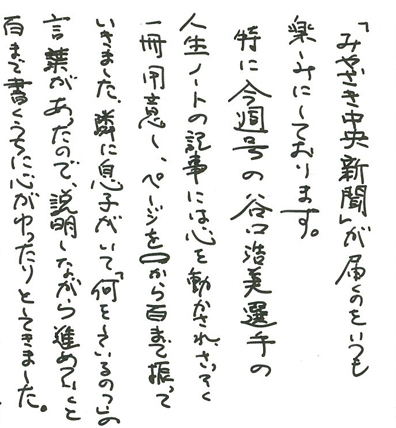 「みやざき中央新聞」が届くのをいつも
楽しみにしております。
特に今週号の谷口浩美選手の
人生ノートの記事には心を動かされ、さっそく
一冊用意し、ページを一から百まで振って
いきました。隣に息子がいて「何をしているの？」の
言葉があったので、説明しながら進めていくと
百まで書くうちに心がゆったりとしてきました。